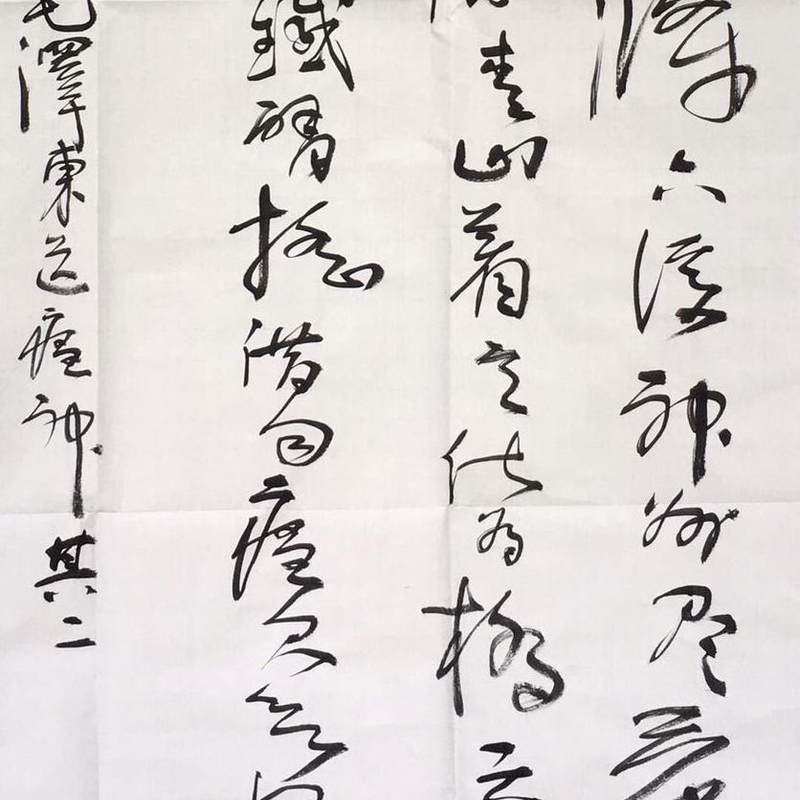 條六億神州盡舜
青山着意化為橋天
鐵臂搖借問瘟君欲何
毛澤東送瘟神其二